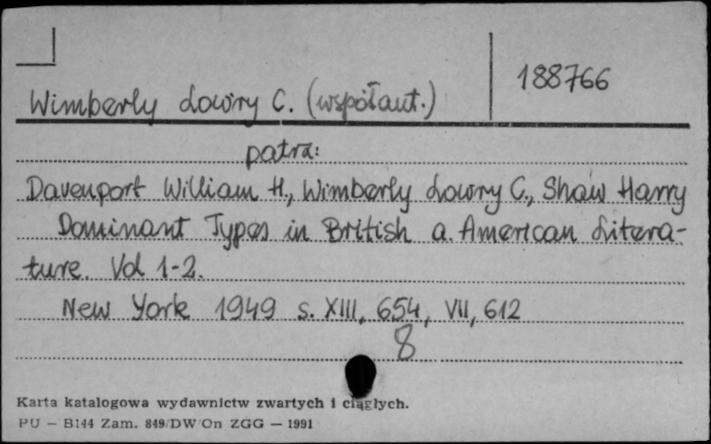 188766
Wimberly Lowry C. (współaut.)
patrz:
Davenport William H., Wimberly Lowry C., Shaw Harry
Dominant Types in British a. American Litera-
ture. Vol 1-2.
New York 1949 s. XIII, 654, VII, 612
8
Karta katalogowa wydawnictw zwartych i ciągłych.
PU — B144 Zam. 849/DW/On ZGG — 1991